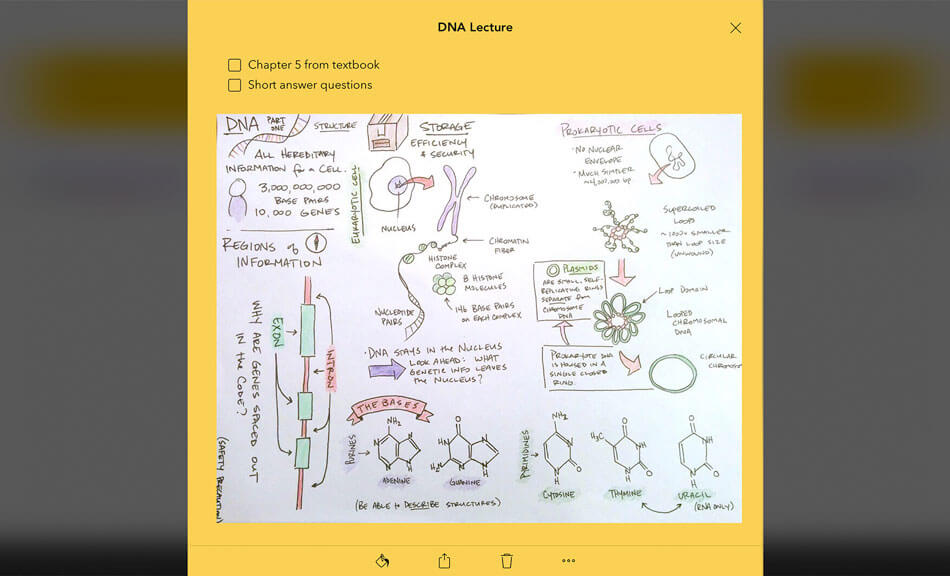 DNA Lecture
Chapter 5 from textbook
Short answer questions
DNA PART ONE
STRUCTURE
ALL HEREDITARY
INFORMATION for a CELL.
3,000,000,000
BASE PAIRS
10,000 GENES
REGIONS of
INFORMATION
WHY ARE GENES SPACED OUT
IN the CODE?
(SAFETY PRECAUTION)
EXON
INTRON
STORAGE
EFFICIENCY
& SECURITY
EUKARYOTIC CELL
NUCLEUS
CHROMOSOME
(DUPLICATED)
CHROMATIN
FIBER
HISTONE
COMPLEX
8 HISTONE
MOLECULES
146 BASE PAIRS
on EACH COMPLEX
NUCLEOTIDE
PAIRS
• DNA STAYS IN the NUCLEUS
LOOK AHEAD: WHAT
GENETIC INFO LEAVES
the NUCLEUS?
PROKARYOTIC CELLS
• NO NUCLEAR
ENVELOPE
• MUCH SIMPLER
SUPERCOILED
LOOPS
SMALLER
THAN LOOP SIZE
(UNWOUND)
PLASMIDS
ARE SMALL, SELF-
REPLICATING RINGS
SEPARATE from
CHROMOSOME
DNA
LOOP DOMAIN
LOOPED
CHROMOSOMAL
DNA
PROKARYOTE DNA
IS HOUSED IN A
SINGLE CLOSED
RING.
CIRCULAR
CHROMOS
THE BASES
PURINES
NH₂
N
N
N
N
H
ADENINE
O
HN
H₂N
N
N
N
H
GUANINE
(BE ABLE to DESCRIBE STRUCTURES)
PYRIMIDINES
NH₂
N
N
H
O
CYTOSINE
O
H₃C
NH
N
H
O
THYMINE
O
NH
N
H
O
URACIL
(RNA ONLY)